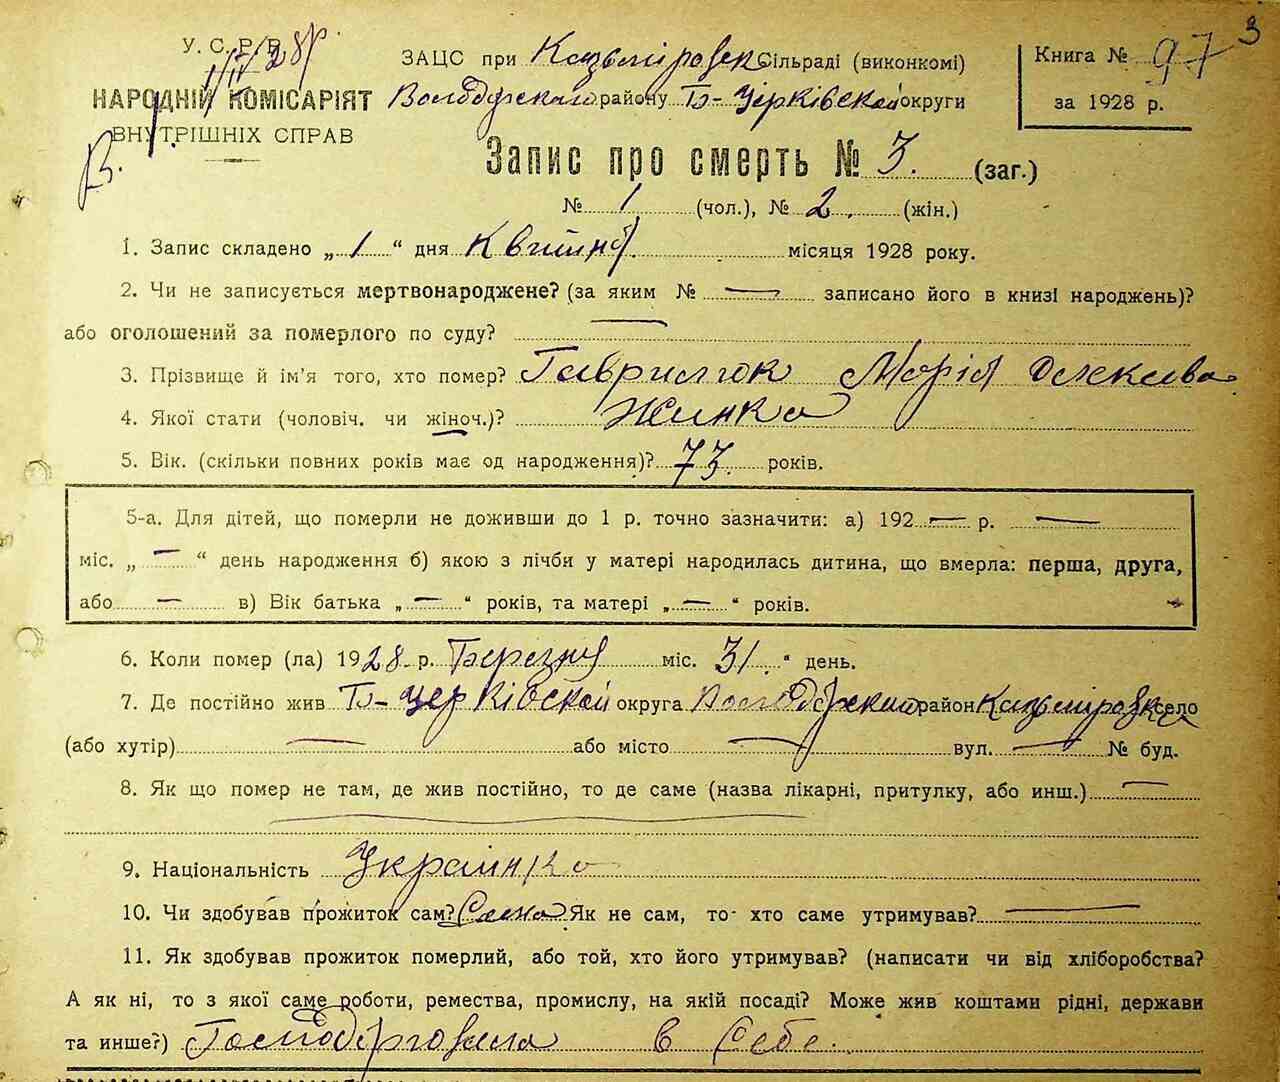 3
У. С. Р. Р.
1/IV 28 р.
ЗАЦС при Казьміровск Сільраді (виконкомі)
Книга № 97
НАРОДНІЙ КОМІСАРІЯТ
Володарского району Б-Церківской округи
за 1928 р.
ВНУТРІШНІХ СПРАВ
В.
Запис про смерть № 3. (заг.)
№ 1 (чол.), № 2. (жін.)
1. Запис складено „ 1 “ дня Квітня місяця 1928 року.
2. Чи не записується мертвонароджене? (за яким № — записано його в книзі народжень)?
або оголошений за померлого по суду? —
3. Прізвище й ім’я того, хто помер? Гаврилюк Марія
4. Якої стати (чоловіч. чи жіноч.)? Жинка
5. Вік. (скільки повних років має од народження)? 73 років.
5-а. Для дітей, що померли не доживши до 1 р. точно зазначити: а) 192 — р. —
міс. „ — “ день народження б) якою з лічби у матері народилась дитина, що вмерла: перша, друга,
або — в) Вік батька „ — “ років, та матері „ — “ років.
6. Коли помер (ла) 1928 р. Березня міс. 31 “ день.
7. Де постійно жив Б-Церківской округа Володарский район Казьміровка село
(або хутір) — або місто — вул. — № буд.
8. Як що помер не там, де жив постійно, то де саме (назва лікарні, притулку, або инш.) —
9. Національність Украінка
10. Чи здобував прожиток сам? Сама Як не сам, то хто саме утримував? —
11. Як здобував прожиток померлий, або той, хто його утримував? (написати чи від хліборобства?
А як ні, то з якої саме роботи, ремества, промислу, на якій посаді? Може жив коштами рідні, держави
та инше?) Господарювала в Себе.